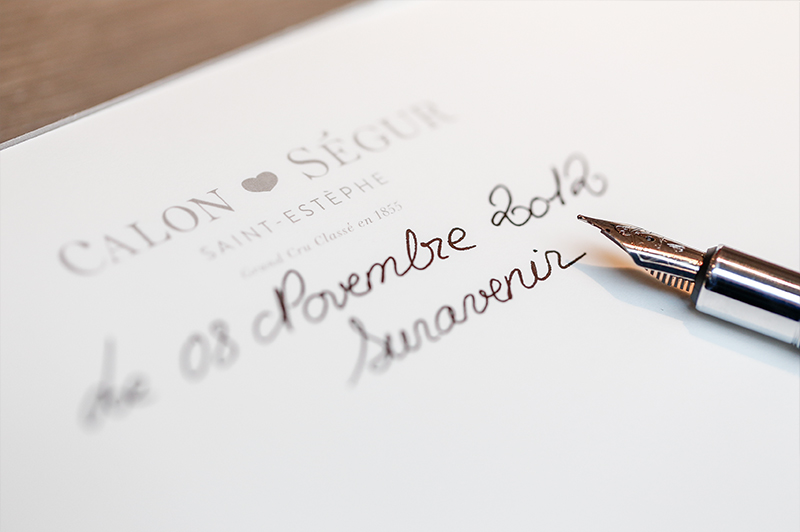 CALON SÉGUR
SAINT-ESTÈPHE
Grand Cru Classé en 1855
Le 08 Novembre 2012
Suravenir